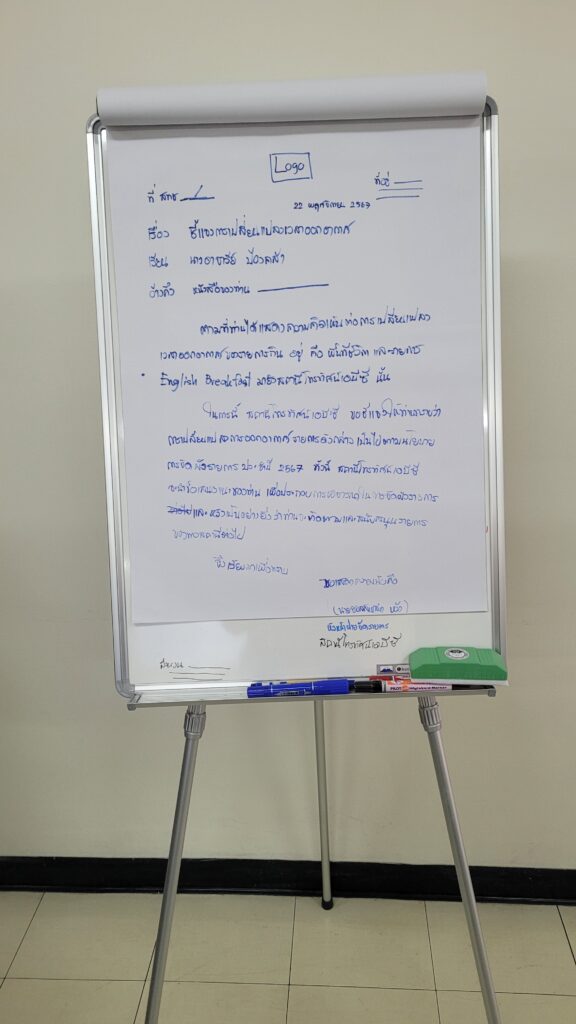 Logo
ที่ สทช
ที่อยู่
22 พฤศจิกายน 2567
เรื่อง ชี้แจงการเปลี่ยนแปลงเวลาออกอากาศ
เรียน นางอาจารีย์
อ้างถึง หนังสือของท่าน
ตามที่ท่านได้แสดงความคิดเห็นต่อการเปลี่ยนแปลง
เวลาออกอากาศ ของรายการ อยู่ คือ พื้นที่ชีวิต และรายการ
English Breakfast ทางสถานีโทรทัศน์เอบีซี นั้น
ในการนี้ สถานีโทรทัศน์เอบีซี ขอชี้แจงให้ท่านทราบว่า
การเปลี่ยนแปลงการออกอากาศรายการดังกล่าว เป็นไปตามนโยบาย
การจัดผังรายการ ประจำปี 2567 ทั้งนี้ สถานีโทรทัศน์เอบีซี
จะนำข้อเสนอแนะของท่าน เพื่อประกอบการพิจารณาในการจัดผังรายการ
และหวังเป็นอย่างยิ่งว่าท่านจะติดตามและสนับสนุนรายการ
ของทางสถานีต่อไป
จึงเรียนมาเพื่อทราบ
ขอแสดงความนับถือ
หัวหน้าฝ่ายจัดรายการ
สถานีโทรทัศน์เอบีซี
PILOT